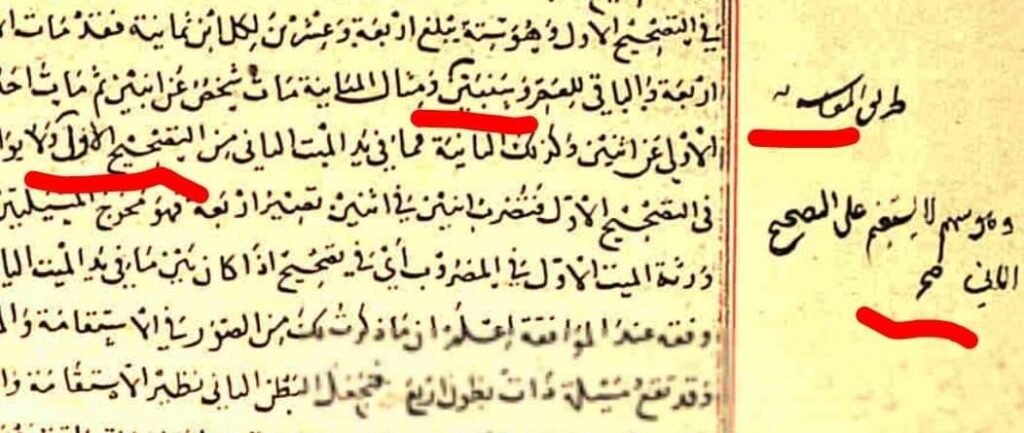 في التصحيح الاول وهو ستة يبلغ اربعة وعشرين لكل ابن ثمانية فقد مات
اربعة والباقي للعم وسنبين ومثال المباينة مات شخص عن ابنين ثم مات
الاول عن اثنين وكذلك المباينة فما في يد الميت الثاني من التصحيح الاول ولا
في التصحيح الاول فتضرب اثنين في اثنين تصير اربعة فهو مخرج المسئلتين
ورثة الميت الاول في المضروب أي في تصحيح اذا كان بين ما في يد الميت
وفقه عند الموافقة اعلم ان ما ذكرت لك من الصور في الاستقامة
وقد تقع مسئلة ذات بطون اربع فتجعل البطن الثاني نظير الاستقامة
وهو سهم لا يستقيم على التصحيح
الثاني صح